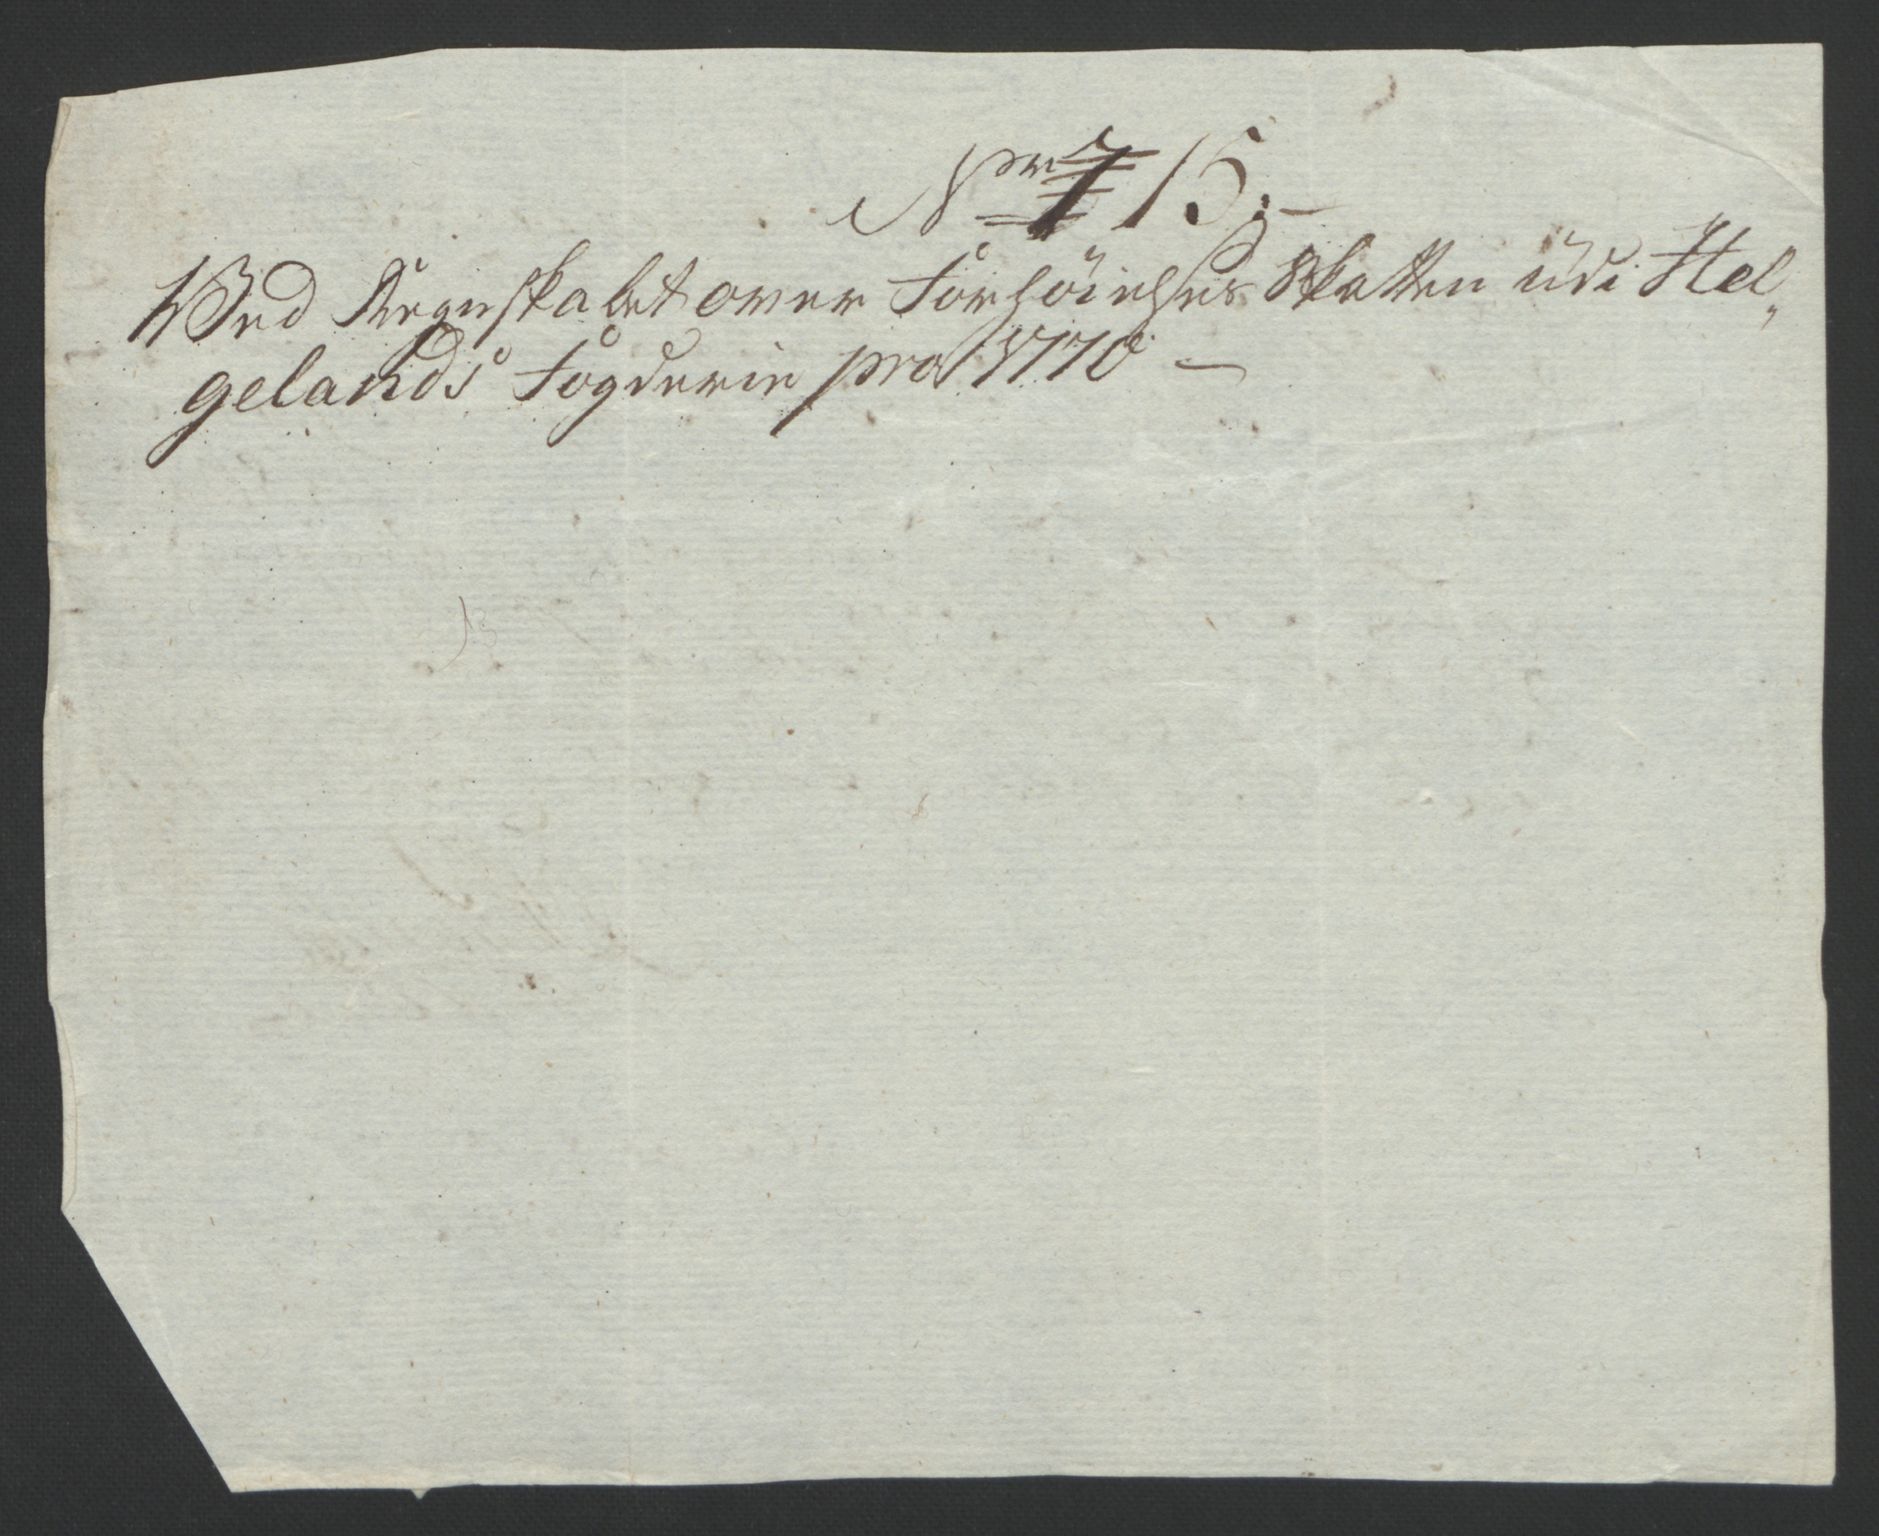 Nro 15.-
Wed Regnskabet over Forhöielses Skatten udi Hel„
gelands Fogderie pro 1770 —